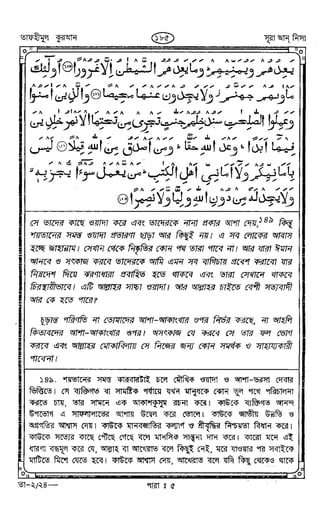 তাফহীমুল কুরআন
১৮৫
সূরা আন্ নিসা
يَعِدُهُمْ وَيُمَنِّيهِمْ وَمَا يَعِدُهُمُ الشَّيْطٰنُ إِلَّا غُرُورًا ﴿١٢٠﴾ أُولٰئِكَ
مَأْوٰىهُمْ جَهَنَّمُ وَلَا يَجِدُونَ عَنْهَا مَحِيصًا ﴿١٢١﴾ وَالَّذِينَ اٰمَنُوا
وَعَمِلُوا الصّٰلِحٰتِ سَنُدْخِلُهُمْ جَنّٰتٍ تَجْرِي مِنْ تَحْتِهَا الْأَنْهٰرُ خٰلِدِينَ
فِيهَا أَبَدًا وَعْدَ اللهِ حَقًّا وَمَنْ أَصْدَقُ مِنَ اللهِ قِيلًا ﴿١٢٢﴾ لَيْسَ
بِأَمَانِيِّكُمْ وَلَا أَمَانِيِّ أَهْلِ الْكِتٰبِ مَنْ يَعْمَلْ سُوءًا يُجْزَ بِهِ
وَلَا يَجِدْ لَهُ مِنْ دُونِ اللهِ وَلِيًّا وَلَا نَصِيرًا ﴿١٢٣﴾
সে তাদের কাছে ওয়াদা করে এবং তাদেরকে নানা প্রকার আশা দেয়,১৪৯ কিন্তু
শয়তানের সমস্ত ওয়াদা প্রতারণা ছাড়া আর কিছুই নয়। এ সব লোকের আবাস
হচ্ছে জাহান্নাম। সেখান থেকে নিষ্কৃতির কোন পথ তারা পাবে না। আর যারা ঈমান
আনবে ও সৎকাজ করবে তাদেরকে আমি এমন সব বাগীচায় প্রবেশ করাবো যার
নিম্নদেশ দিয়ে ঝরণাধারা প্রবাহিত হতে থাকবে এবং তারা সেখানে থাকবে
চিরস্থায়ীভাবে। এটা আল্লাহর সাচ্চা ওয়াদা। আর আল্লাহর চাইতে বেশী সত্যবাদী
আর কে হতে পারে?
চূড়ান্ত পরিণতি না তোমাদের আশা-আকাংখার ওপর নির্ভর করছে, না আহলি
কিতাবদের আশা-আকাংখার ওপর। অসৎকাজ যে করবে সে তার ফল ভোগ
করবে এবং আল্লাহর মোকাবিলায় সে নিজের জন্য কোন সমর্থক ও সাহায্যকারী
পাবেনা।
১৪৯. শয়তানের সমস্ত কারবারটাই চলে মৌখিক ওয়াদা ও আশা-ভরসা দেবার
ভিত্তিতে। সে ব্যক্তিগত বা সামষ্টিক পর্যায়ে যখন মানুষকে কোন ভুল পথে পরিচালনা
করতে চায়, তার সামনে এক আকাশকুসুম রচনা করে। কাউকে ব্যক্তিগত আনন্দ
উপভোগ ও সাফল্যলাভের আশায় উদ্বেল করে তোলে। কাউকে জাতীয় উন্নতি ও
অগ্রগতির আশ্বাস দেয়। কাউকে মানবজাতির কল্যাণ ও শ্রীবৃদ্ধির নিশ্চয়তা বিধান করে।
কাউকে সত্যের কাছে পৌছে গেছে বলে মানসিক সান্ত্বনা দান করে। কারো মনে এই
ধারণা বদ্ধমূল করে যে, আল্লাহ বা আখেরাত বলে কিছুই নেই, মরে যাওয়ার পর সবাইকে
মাটিতে মিশে যেতে হবে। কাউকে আশ্বাস দেয়, আখেরাত বলে যদি কিছু থেকেও থাকে
তা-২/২৪—
পারা ঃ ৫